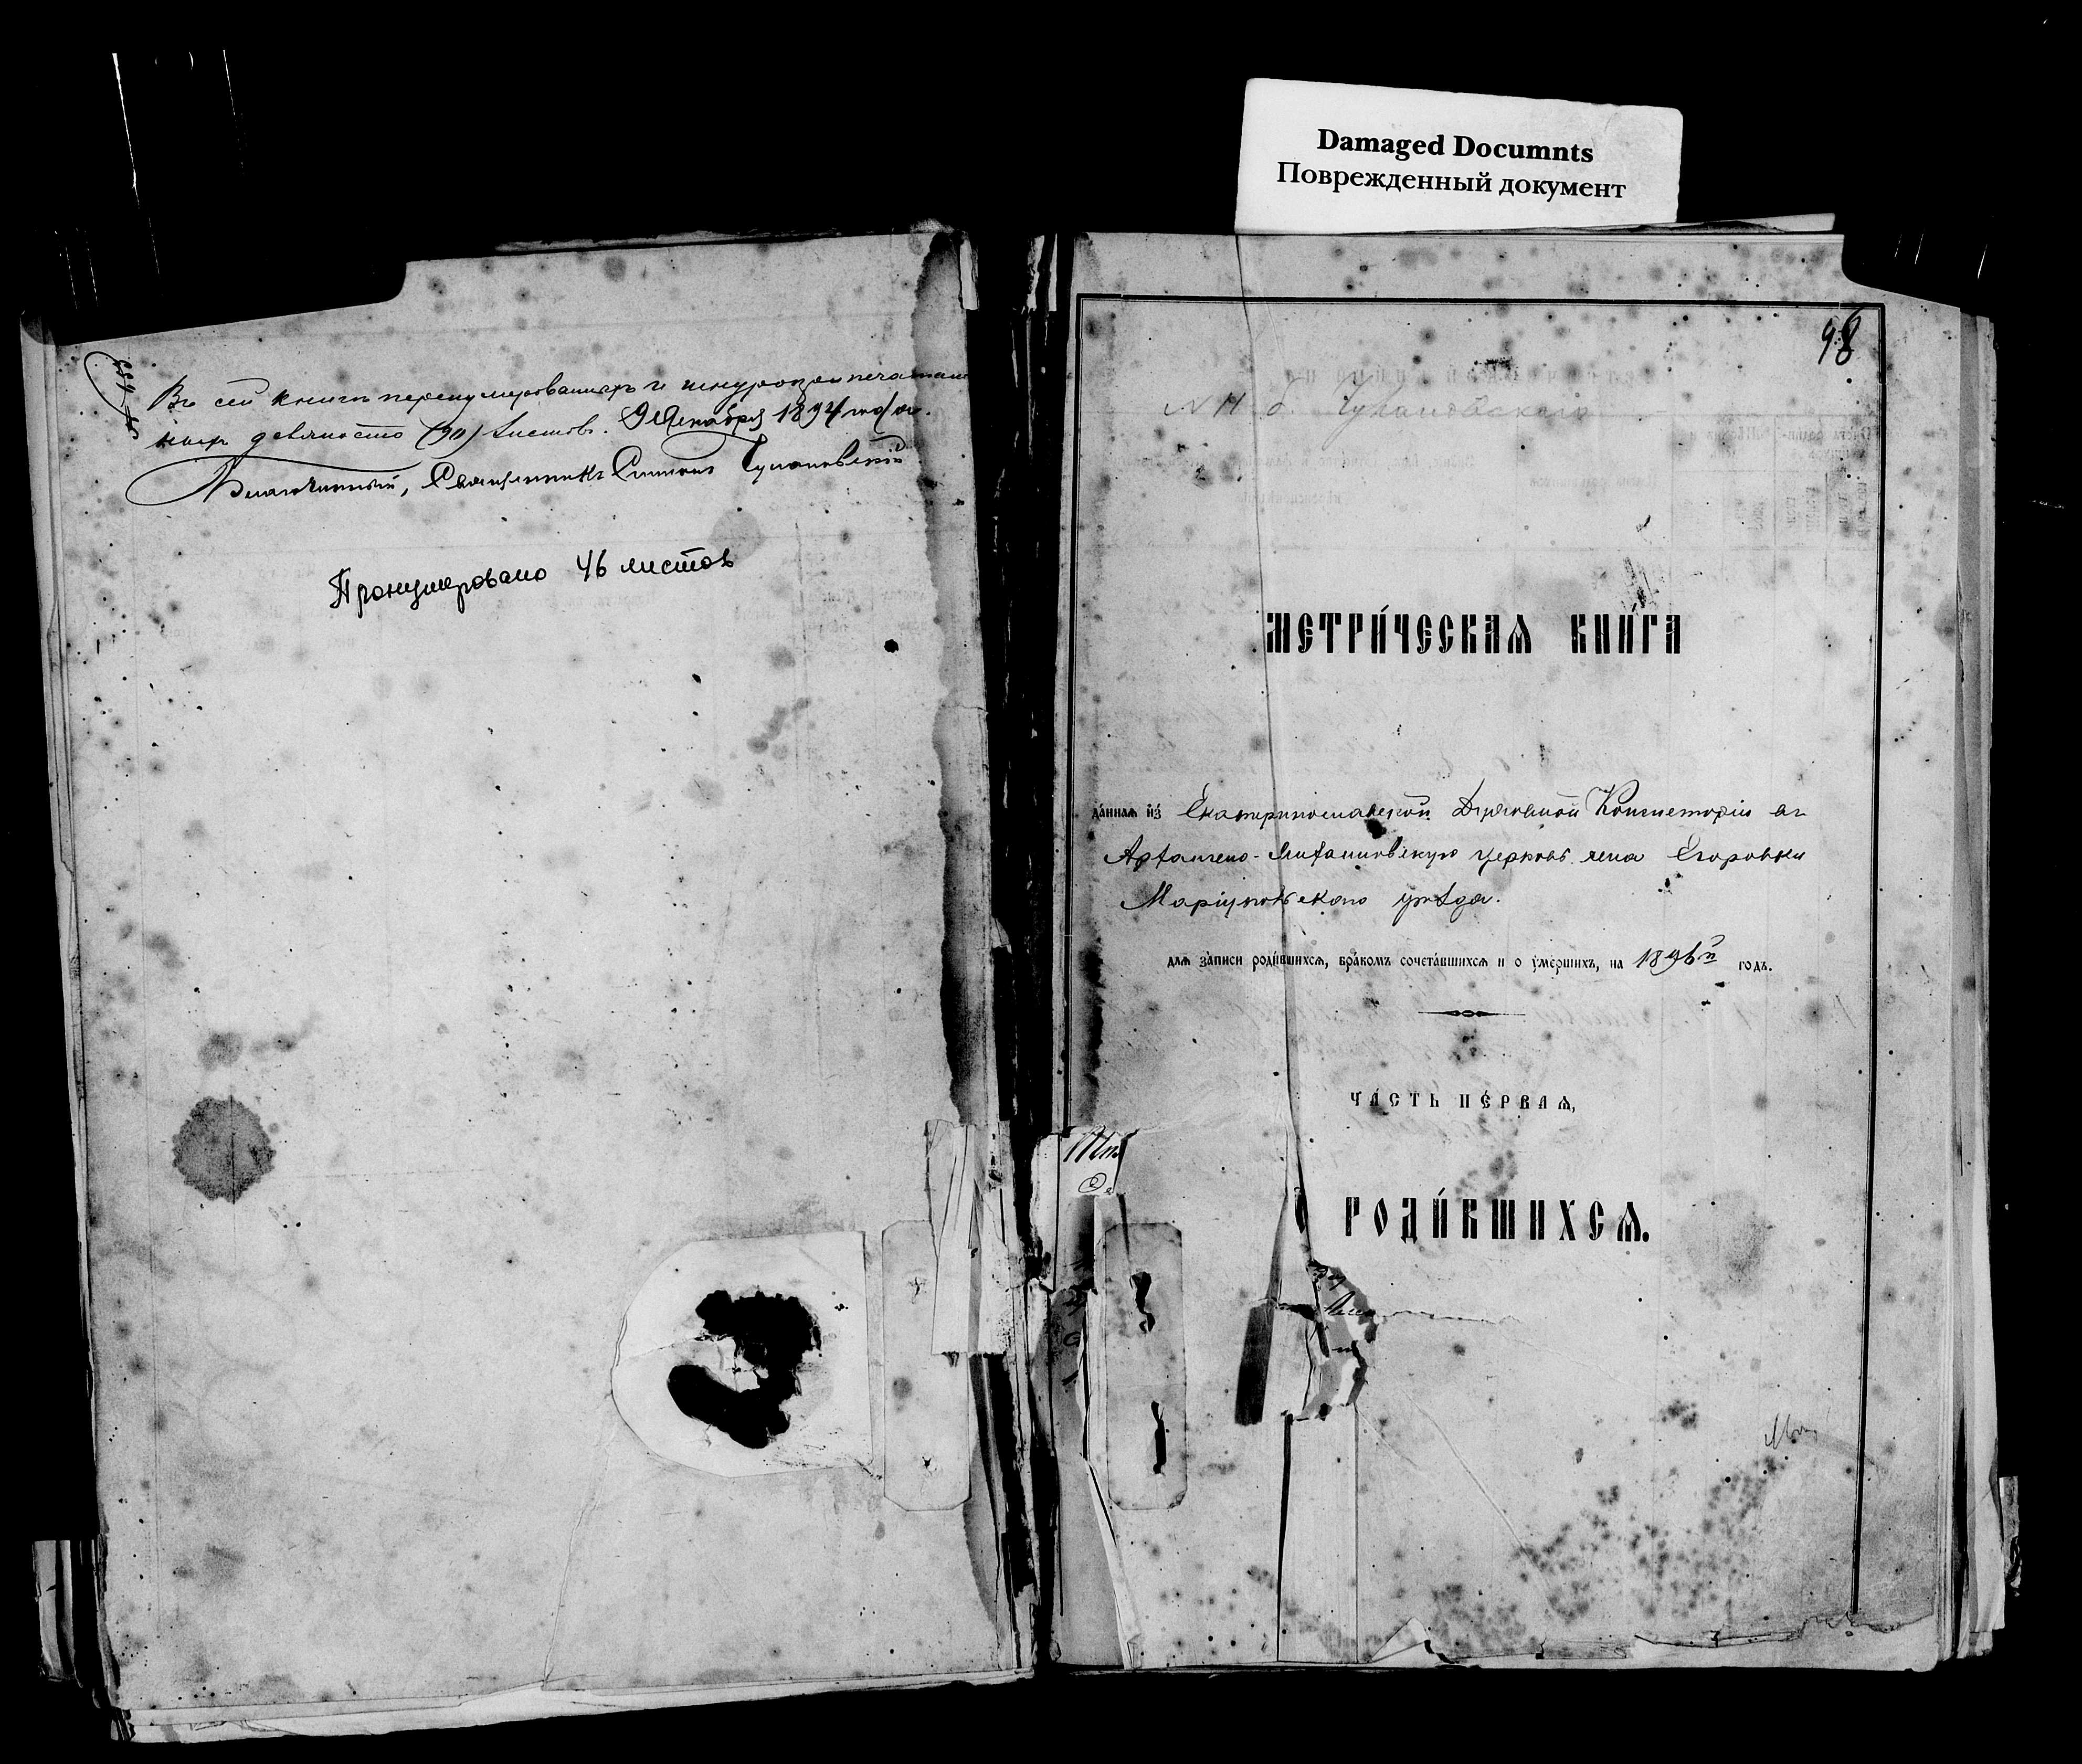 Damaged Documnts
Поврежденный документ
Въ сей книгѣ перенумерованныхъ и шнуроприпечатан
ныхъ девяносто (90) листовъ. Декабря 1894 года.
Благочинный, Священникъ Симеонъ
Пронумеровано 46 листов
98
МЕТРИ́ЧЕСКАѦ КНИ́ГА
да́ннаѧ и́зъ Екатеринославской Духовной Консисторіи въ
Архангело-Михайловскую церковь села Егоровки
Маріупольскаго уѣзда.
длѧ за́писи роди́вшихсѧ, бра́комъ сочета́вшихсѧ и о у́ме́ршихъ, на 1896й годъ.
ЧА́СТЬ ПЕ́РВАѦ,
О РОДИ́ВШИХСѦ.